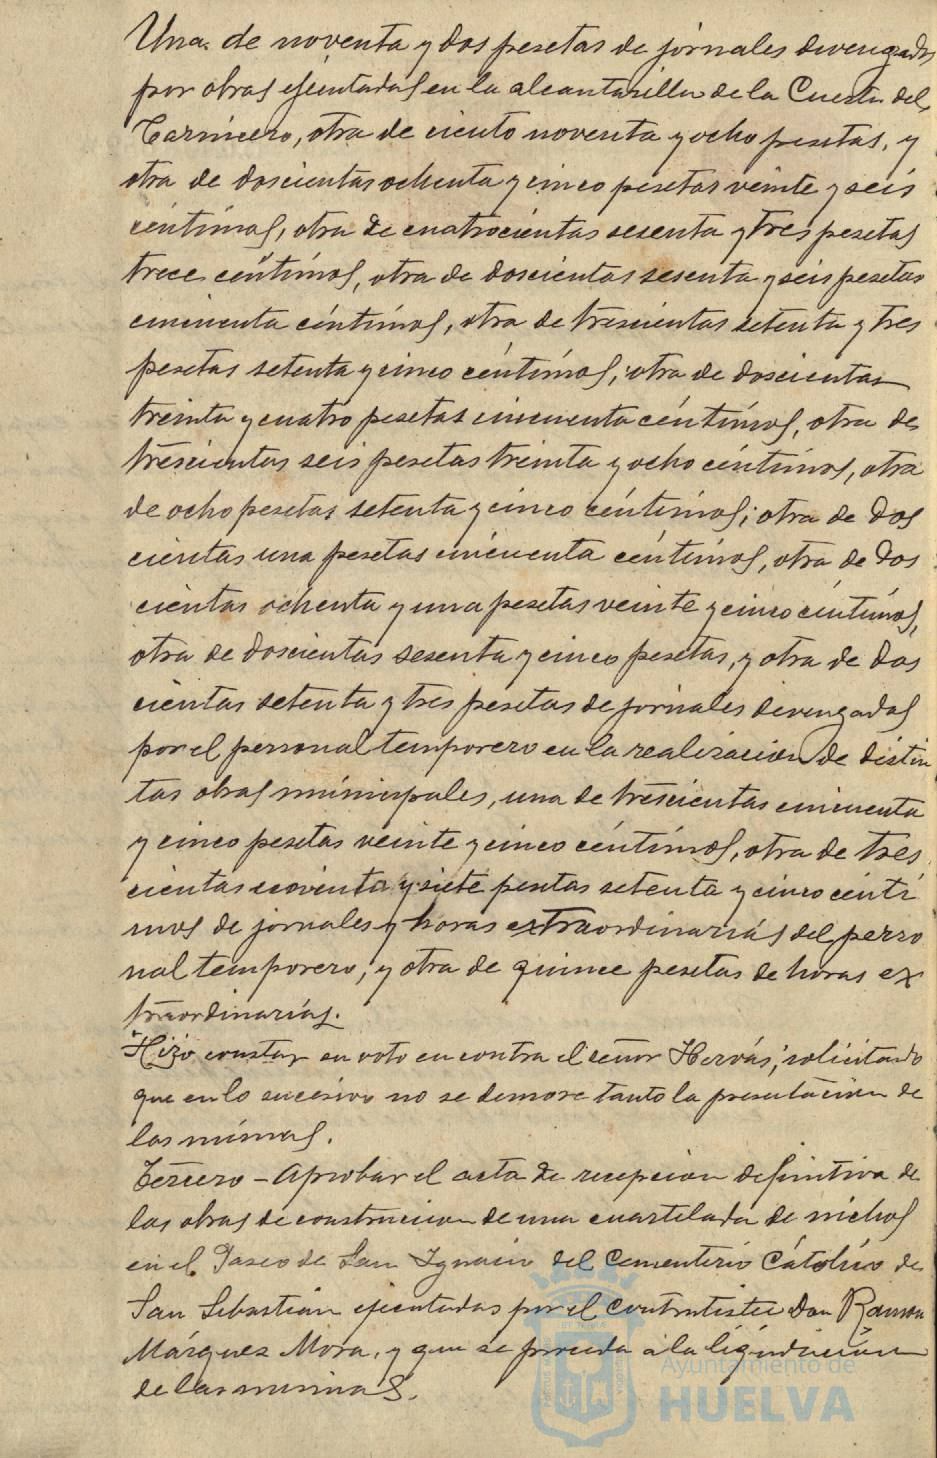 Una de noventa y dos pesetas de jornales devengados
por obras ejecutadas en la alcantarilla de la Cuesta del
Carnicero, otra de ciento noventa y ocho pesetas, y
otra de doscientas ochenta y cinco pesetas veinte y seis
céntimos, otra de cuatrocientas sesenta y tres pesetas
trece céntimos, otra de doscientas sesenta y seis pesetas
cincuenta céntimos, otra de trescientas setenta y tres
pesetas setenta y cinco céntimos; otra de doscientas
treinta y cuatro pesetas cincuenta céntimos, otra de
trescientas seis pesetas treinta y ocho céntimos, otra
de ocho pesetas setenta y cinco céntimos; otra de dos
cientas una pesetas cincuenta céntimos, otra de dos
cientas ochenta y una pesetas veinte y cinco céntimos,
otra de doscientas sesenta y cinco pesetas, y otra de dos
cientas setenta y tres pesetas de jornales devengados
por el personal temporero en la realizacion de distin
tas obras municipales, una de trescientas cincuenta
y cinco pesetas veinte y cinco céntimos, otra de tres
cientas noventa y siete pesetas setenta y cinco cénti
mos de jornales y horas extraordinarias del perso
nal temporero, y otra de quince pesetas de horas ex
traordinarias.
Hizo constar su voto en contra el señor Hervás, solicitando
que en lo sucesivo no se demore tanto la presentacion de
las mismas.
Tercero - Aprobar el acta de recepcion definitiva de
las obras de construccion de una cuartelada de nichos
en el Paseo de San Ignacio del Cementerio Católico de
San Sebastián ejecutadas por el Contratista Don Ramon
Márquez Mora, y que se proceda a la liquidacion
de las mismas.
Ayuntamiento de
HUELVA